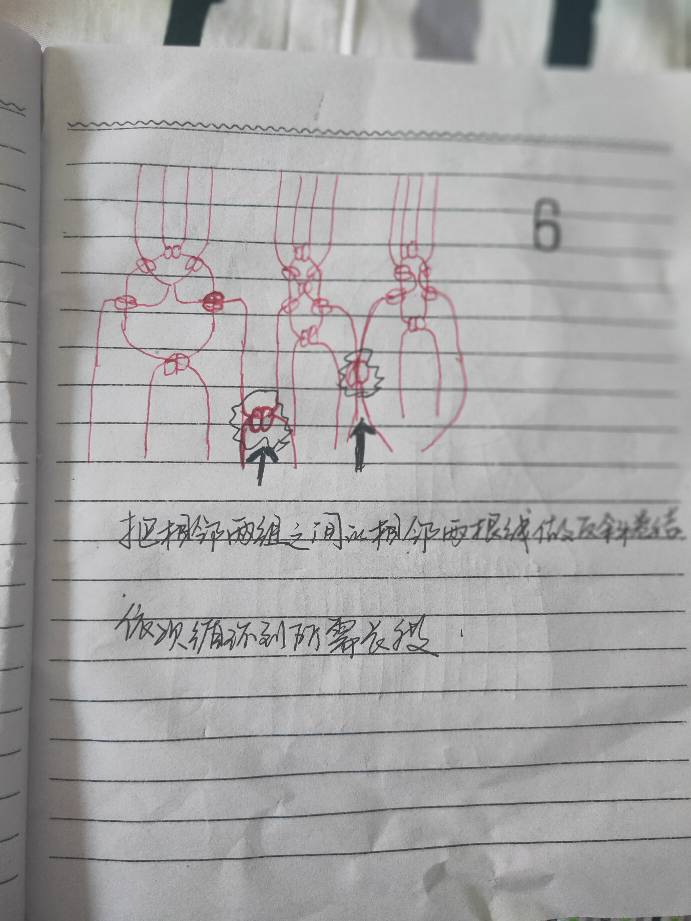 6
把相邻两组之间的相邻两根线做反斜卷结
依次循环到所需长投